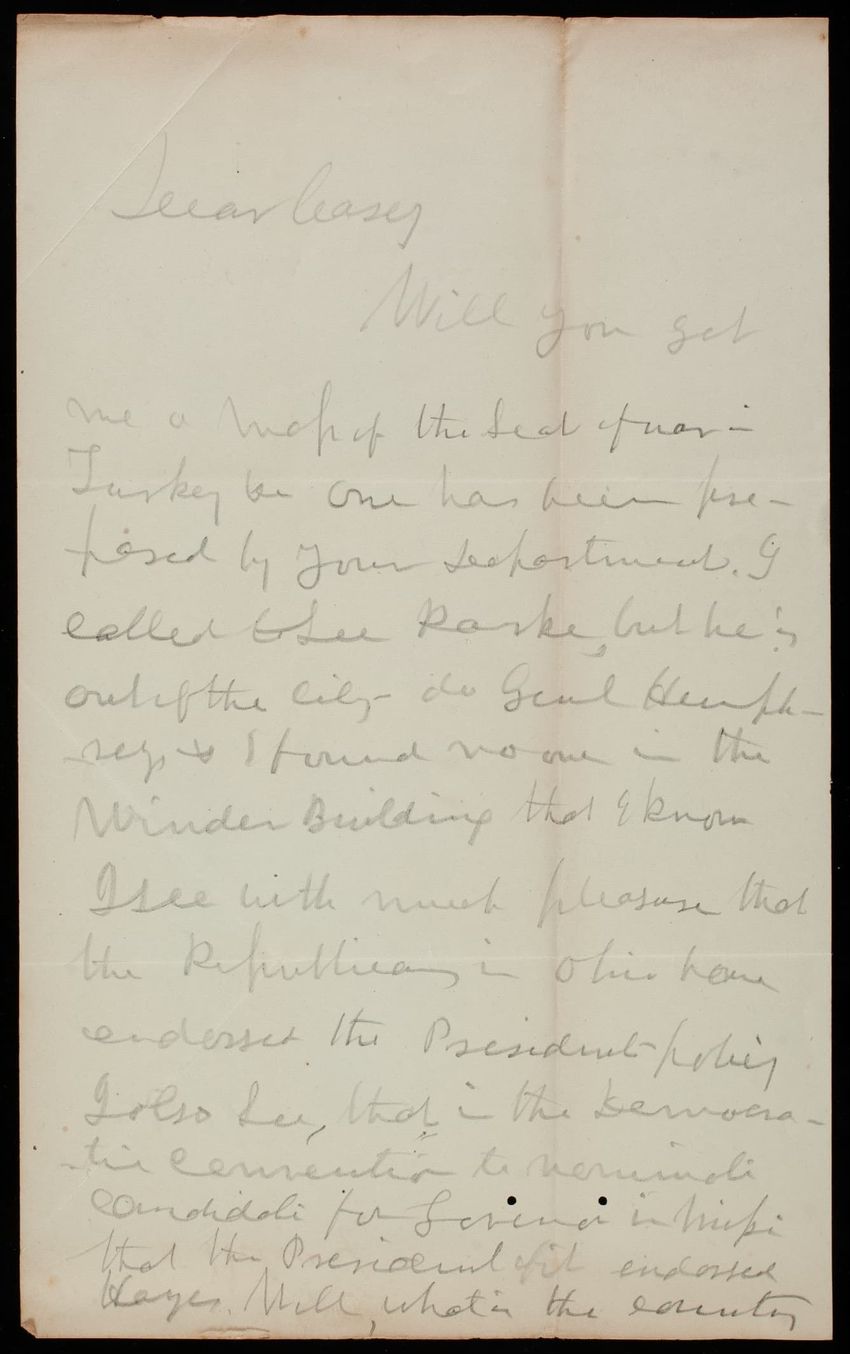 Dear Casey
Will you get
me a Map of the Seat of war in
Turkey be one has been pre-
-pared by your Department. I
called to See Parke, but he is
out of the city - do Genl Humph-
-reys & I found no one in the
Winder Building that I know
I see with much pleasure that
the Republicans in Ohio have
endorsed the President policy
I also See, that in the Democra-
-tic Convention to nominate
Candidate for Govenor in Missi
that the President endorsed
Hayes. Well, what is the country